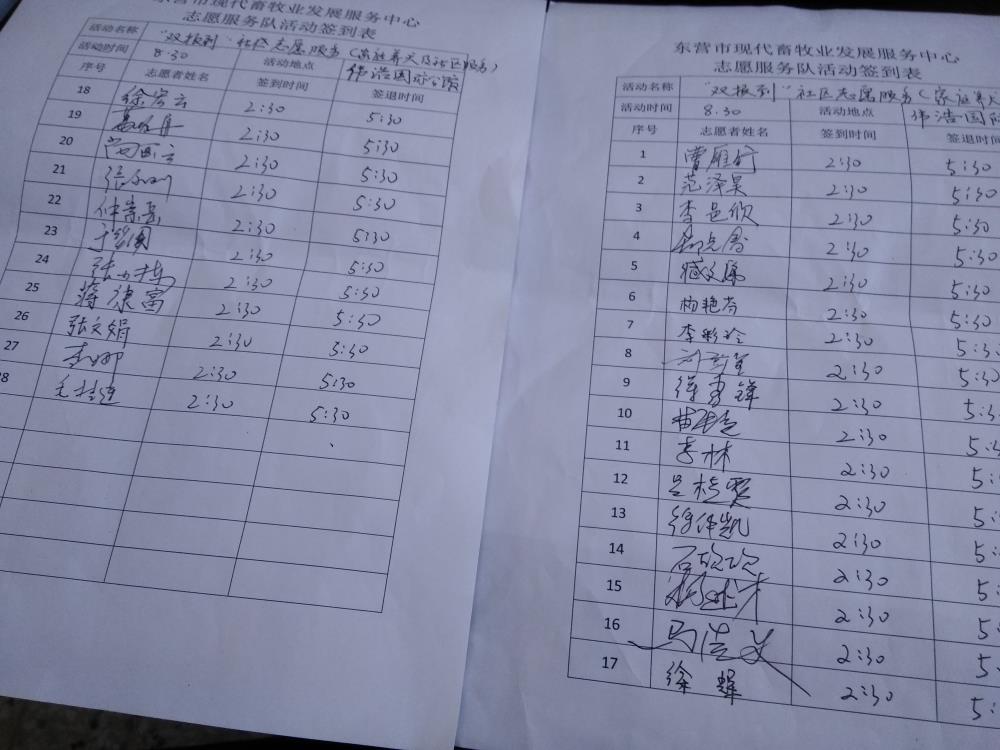 东营市现代畜牧业发展服务中心
志愿服务队活动签到表
活动名称 "双报到"社区志愿服务(家庭养犬及社区服务)
活动时间 8.30 活动地点 伟浩国际公馆
序号 志愿者姓名 签到时间 签退时间
18 徐宏云 2:30 5:30
19 2:30 5:30
20 2:30 5:30
21 2:30 5:30
22 仲崇亮 2:30 5:30
23 2:30 5:30
24 2:30 5:30
25 蒋德富 2:30 5:30
26 张文娟 2:30 5:30
27 李娜 2:30 5:30
28 毛桂连 2:30 5:30
东营市现代畜牧业发展服务中心
志愿服务队活动签到表
活动名称 "双报到"社区志愿服务(家庭养犬
活动时间 8.30 活动地点 伟浩国际
序号 志愿者姓名 签到时间 签退时间
1 曹雁行 2:30 5:30
2 范泽昊 2:30 5:30
3 李邑欣 2:30 5:30
4 2:30 5:30
5 2:30 5:30
6 杨艳芬 2:30 5:30
7 李彩玲 2:30 5:3
8 2:30 5:30
9 2:30 5:3
10 2:30 5:
11 李林 2:30 5:
12 吕桂贤 2:30 5:
13 徐伟凯 2:30 5:
14 2:30 5:
15 2:30 5:
16 马浩义 2:30 5:
17 徐辉 2:30 5: